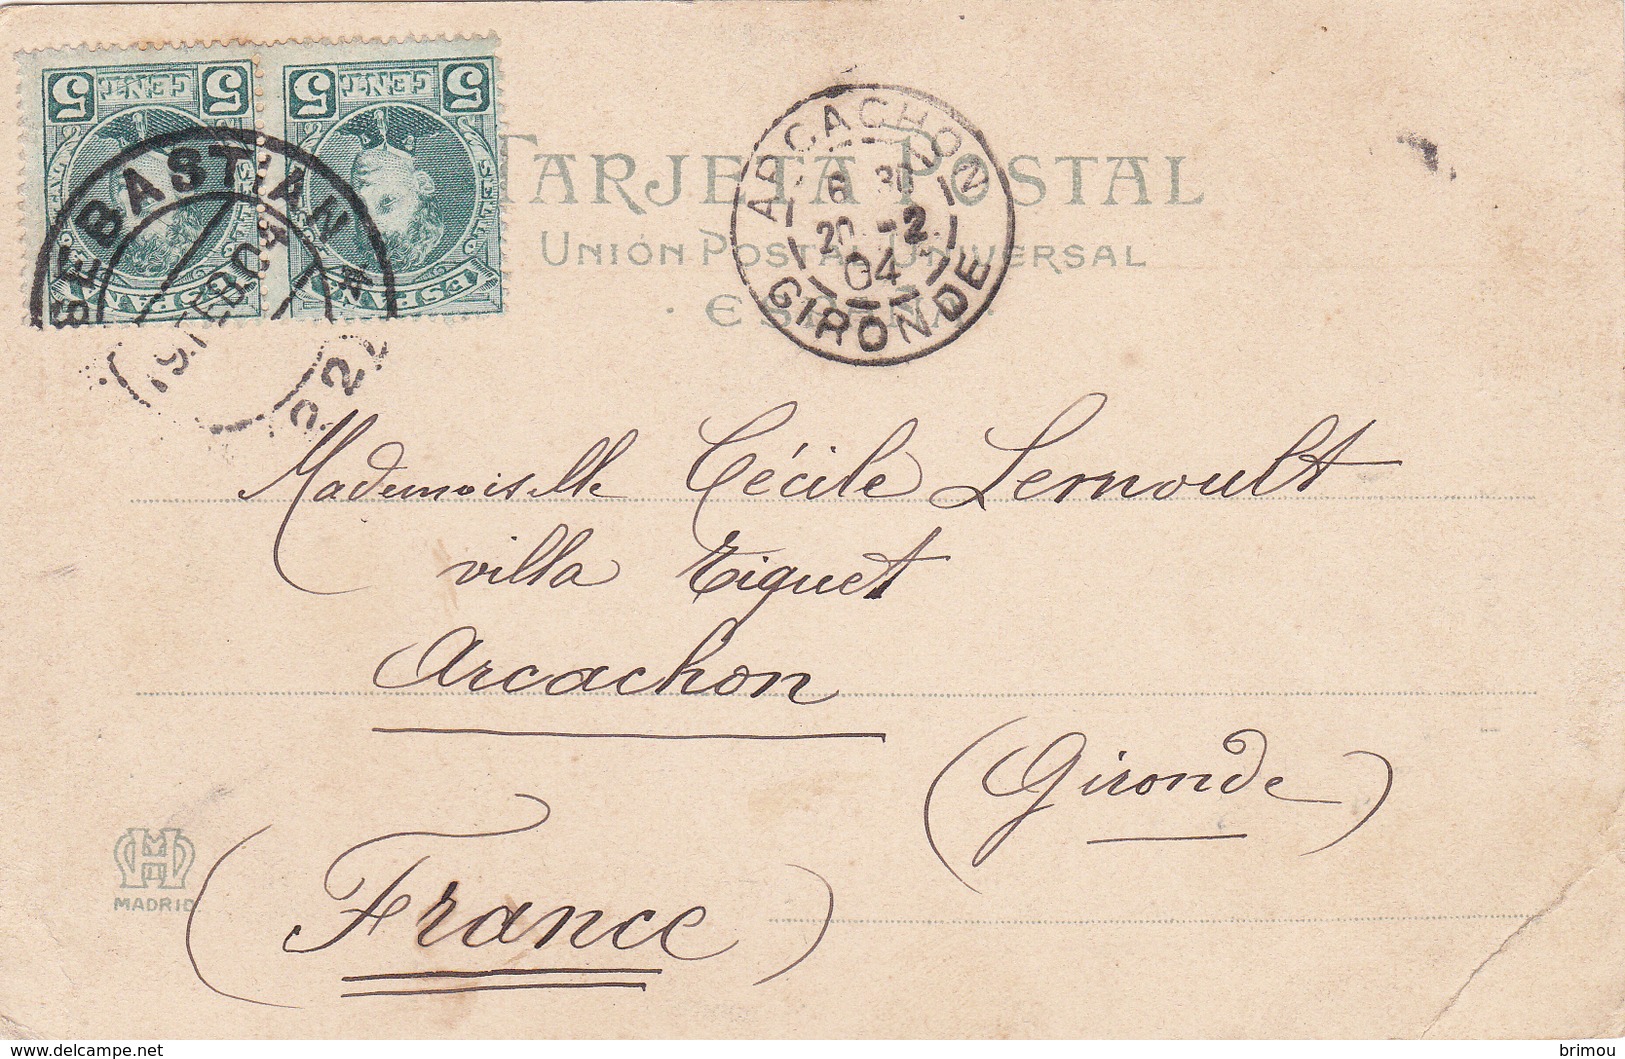 5 CENT. 5
5 CENT. 5
SEBASTIAN
19.FEB.04
TARJETA POSTAL
UNIÓN POSTAL UNIVERSAL
ESPAÑA
ARCACHON
6 30
20 -2
04
GIRONDE
Mademoiselle Cécile Lernoult
villa Eiguet
Arcachon
(Gironde)
(France)
MADRID
www.delcampe.net
brimou